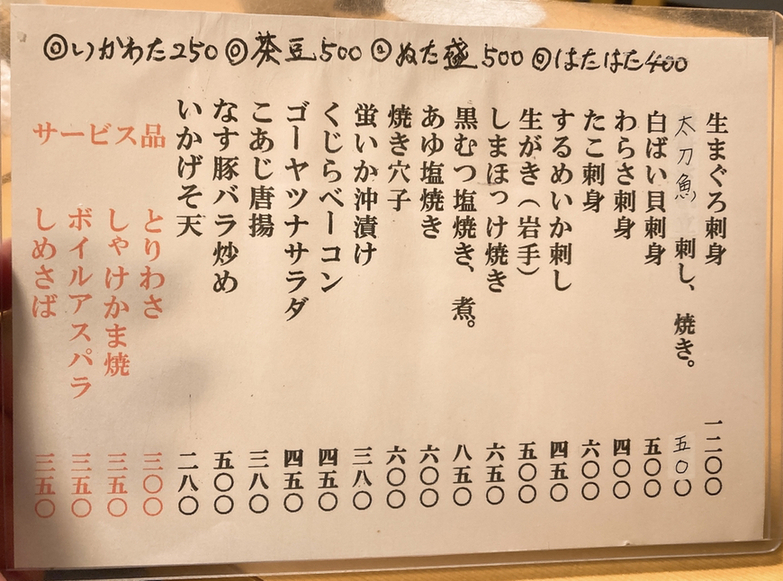 ◎いかわた250 ◎茶豆500 ◎ぬた盛500 ◎はたはた400
生まぐろ刺身 一二〇〇
太刀魚 刺し、焼き。 五〇〇
白ばい貝刺身 五〇〇
わらさ刺身 四〇〇
たこ刺身 六〇〇
するめいか刺し 四五〇
生がき（岩手） 五〇〇
しまほっけ焼き 六五〇
黒むつ塩焼き、煮。 八五〇
あゆ塩焼き 六〇〇
焼き穴子 六〇〇
蛍いか沖漬け 三八〇
くじらベーコン 四五〇
ゴーヤツナサラダ 四五〇
こあじ唐揚 三八〇
なす豚バラ炒め 五〇〇
いかげそ天 二八〇
サービス品
とりわさ 三〇〇
しゃけかま焼 三五〇
ボイルアスパラ 三五〇
しめさば 三五〇